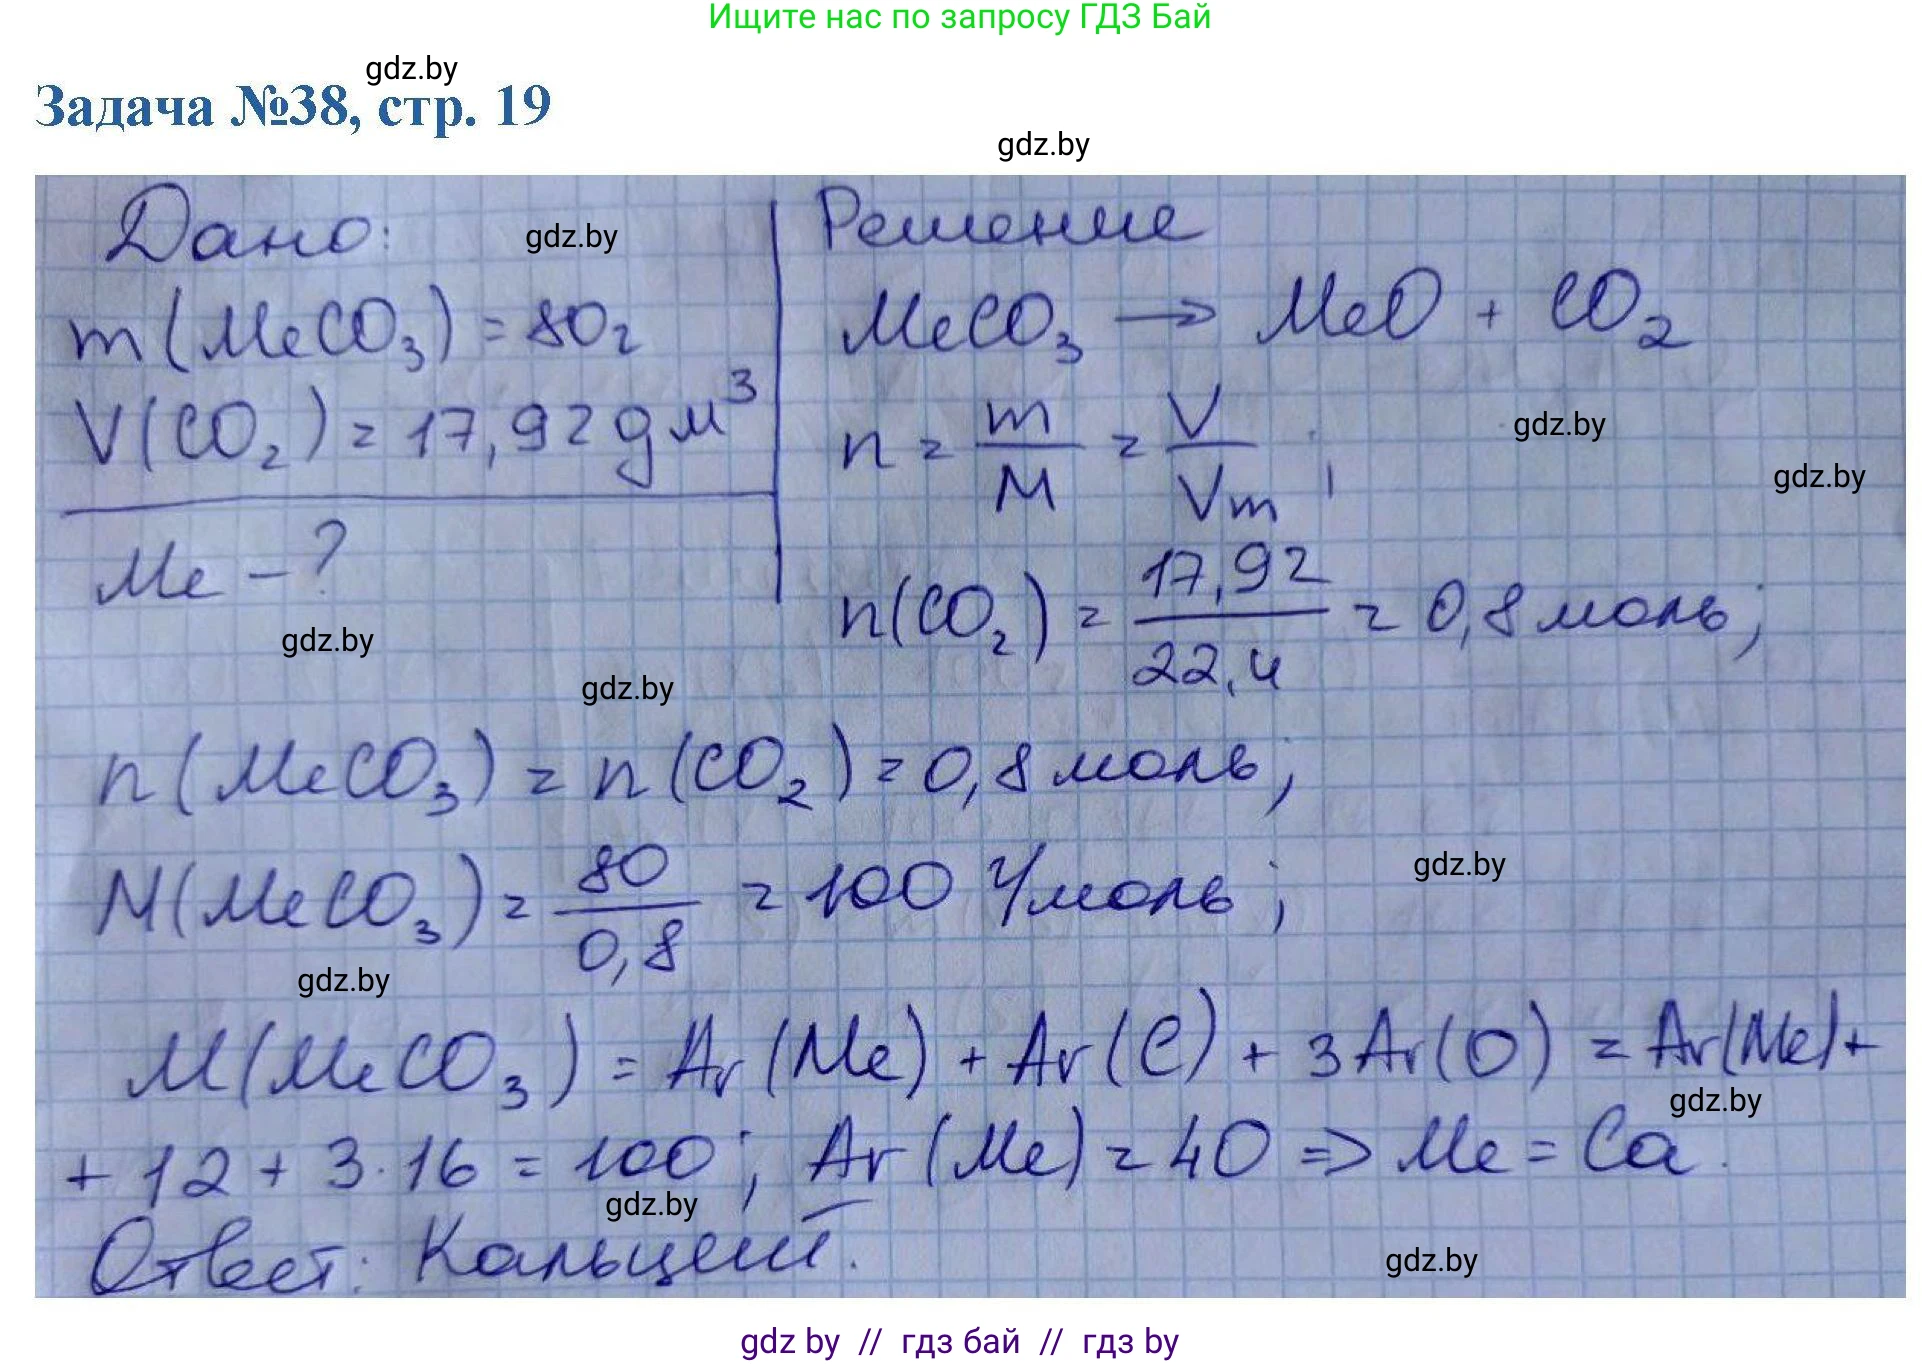 Ищите нас по запросу ГДЗ Бай
gdz.by
Задача №38, стр. 19
gdz.by
Дано:
gdz.by
Решение
m(MeCO₃) = 80г
MeCO₃ → MeO + CO₂
V(CO₂) = 17,92 дм³
n = m/M = V/Vm;
gdz.by
gdz.by
Me - ?
n(CO₂) = 17,92/22,4 = 0,8 моль;
gdz.by
gdz.by
n(MeCO₃) = n(CO₂) = 0,8 моль;
M(MeCO₃) = 80/0,8 = 100 г/моль;
gdz.by
gdz.by
M(MeCO₃) = Ar(Me) + Ar(C) + 3Ar(O) = Ar(Me)+
gdz.by
+ 12 + 3·16 = 100; Ar(Me) = 40 => Me = Ca.
gdz.by
Ответ: Кальций.
gdz.by
gdz by // гдз бай // гдз by